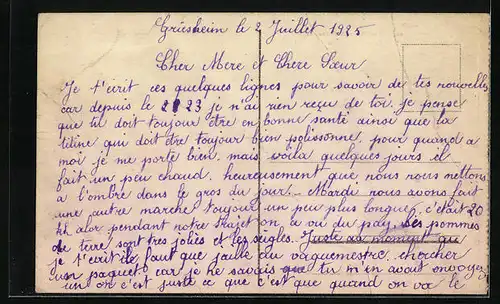 Griesheim le 2 Juillet 1925
Cher Mere et Chere Sœur
Je t'ecrit ces quelques lignes pour savoir de tes nouvelles
car depuis le 23 je n'ai rien reçu de toi. je pense
que tu doit toujour être en bonne santé ainsi que la
titine qui doit être toujour bien polissonne, pour quand a
moi je me porte bien, mais voila quelques jours il
fait un peu chaud, heureusement que nous nous mettons
a l'ombre dans le gros du jour. Mardi nous avons fait
une autre marche toujour un peu plus longue, c'était 20
kh alor pendant notre trajet on a vu du pay, les pommes
de terre sont tres jolies et les seigles. Juste au moment que
je t'ecrit il faut que j'aille au vaguemestre, chercher
un paquet car je ne savais que tu m'en avait envoyer
un on c'est juste ce que c'est que quand on va le